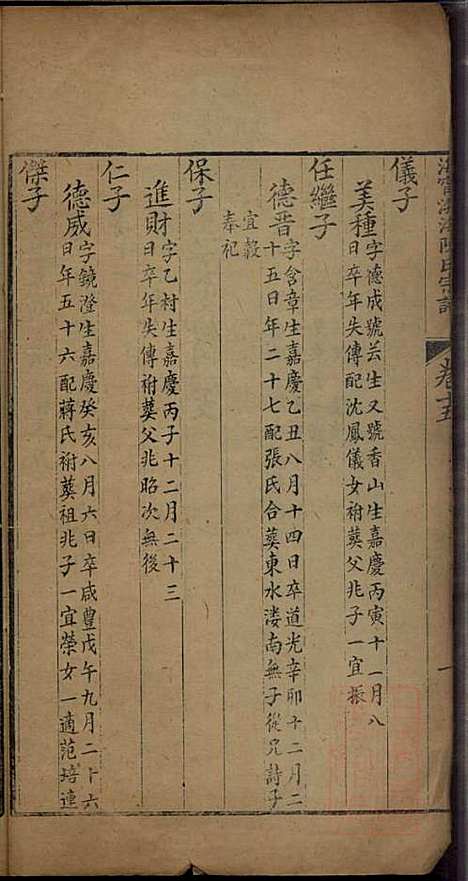 海寧渤海陳氏宗譜 卷十五 一
儀子
美種 字德成號芸生又號香山生嘉慶丙寅十一月八
日卒年失傳配沈鳳儀女祔葬父兆子一宜振
任繼子
德晋 字含章生嘉慶乙丑八月十四日卒道光辛卯十二月二
十五日年二十七配張氏合葬東水溇南無子從兄詩子
宜穀
奉祀
保子
進財 字乙村生嘉慶丙子十二月二十三
日卒年失傳祔葬父兆昭次無後
仁子
德威 字鏡澄生嘉慶癸亥八月六日卒咸豐戊午九月二十六
日年五十六配蔣氏祔葬祖兆子一宜榮女一適范培連
傑子